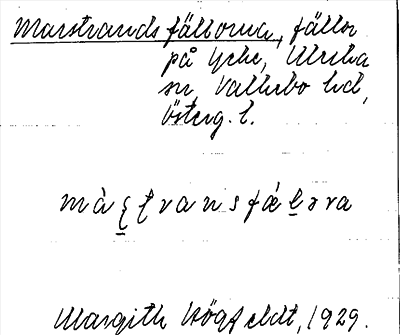 Marstrandsfällorna, fällor
på Yxhe, Ulrika
sn, Valkebo hd,
Österg. l.
màʂʈransfǽḷəra
Margith Högfeldt, 1929.